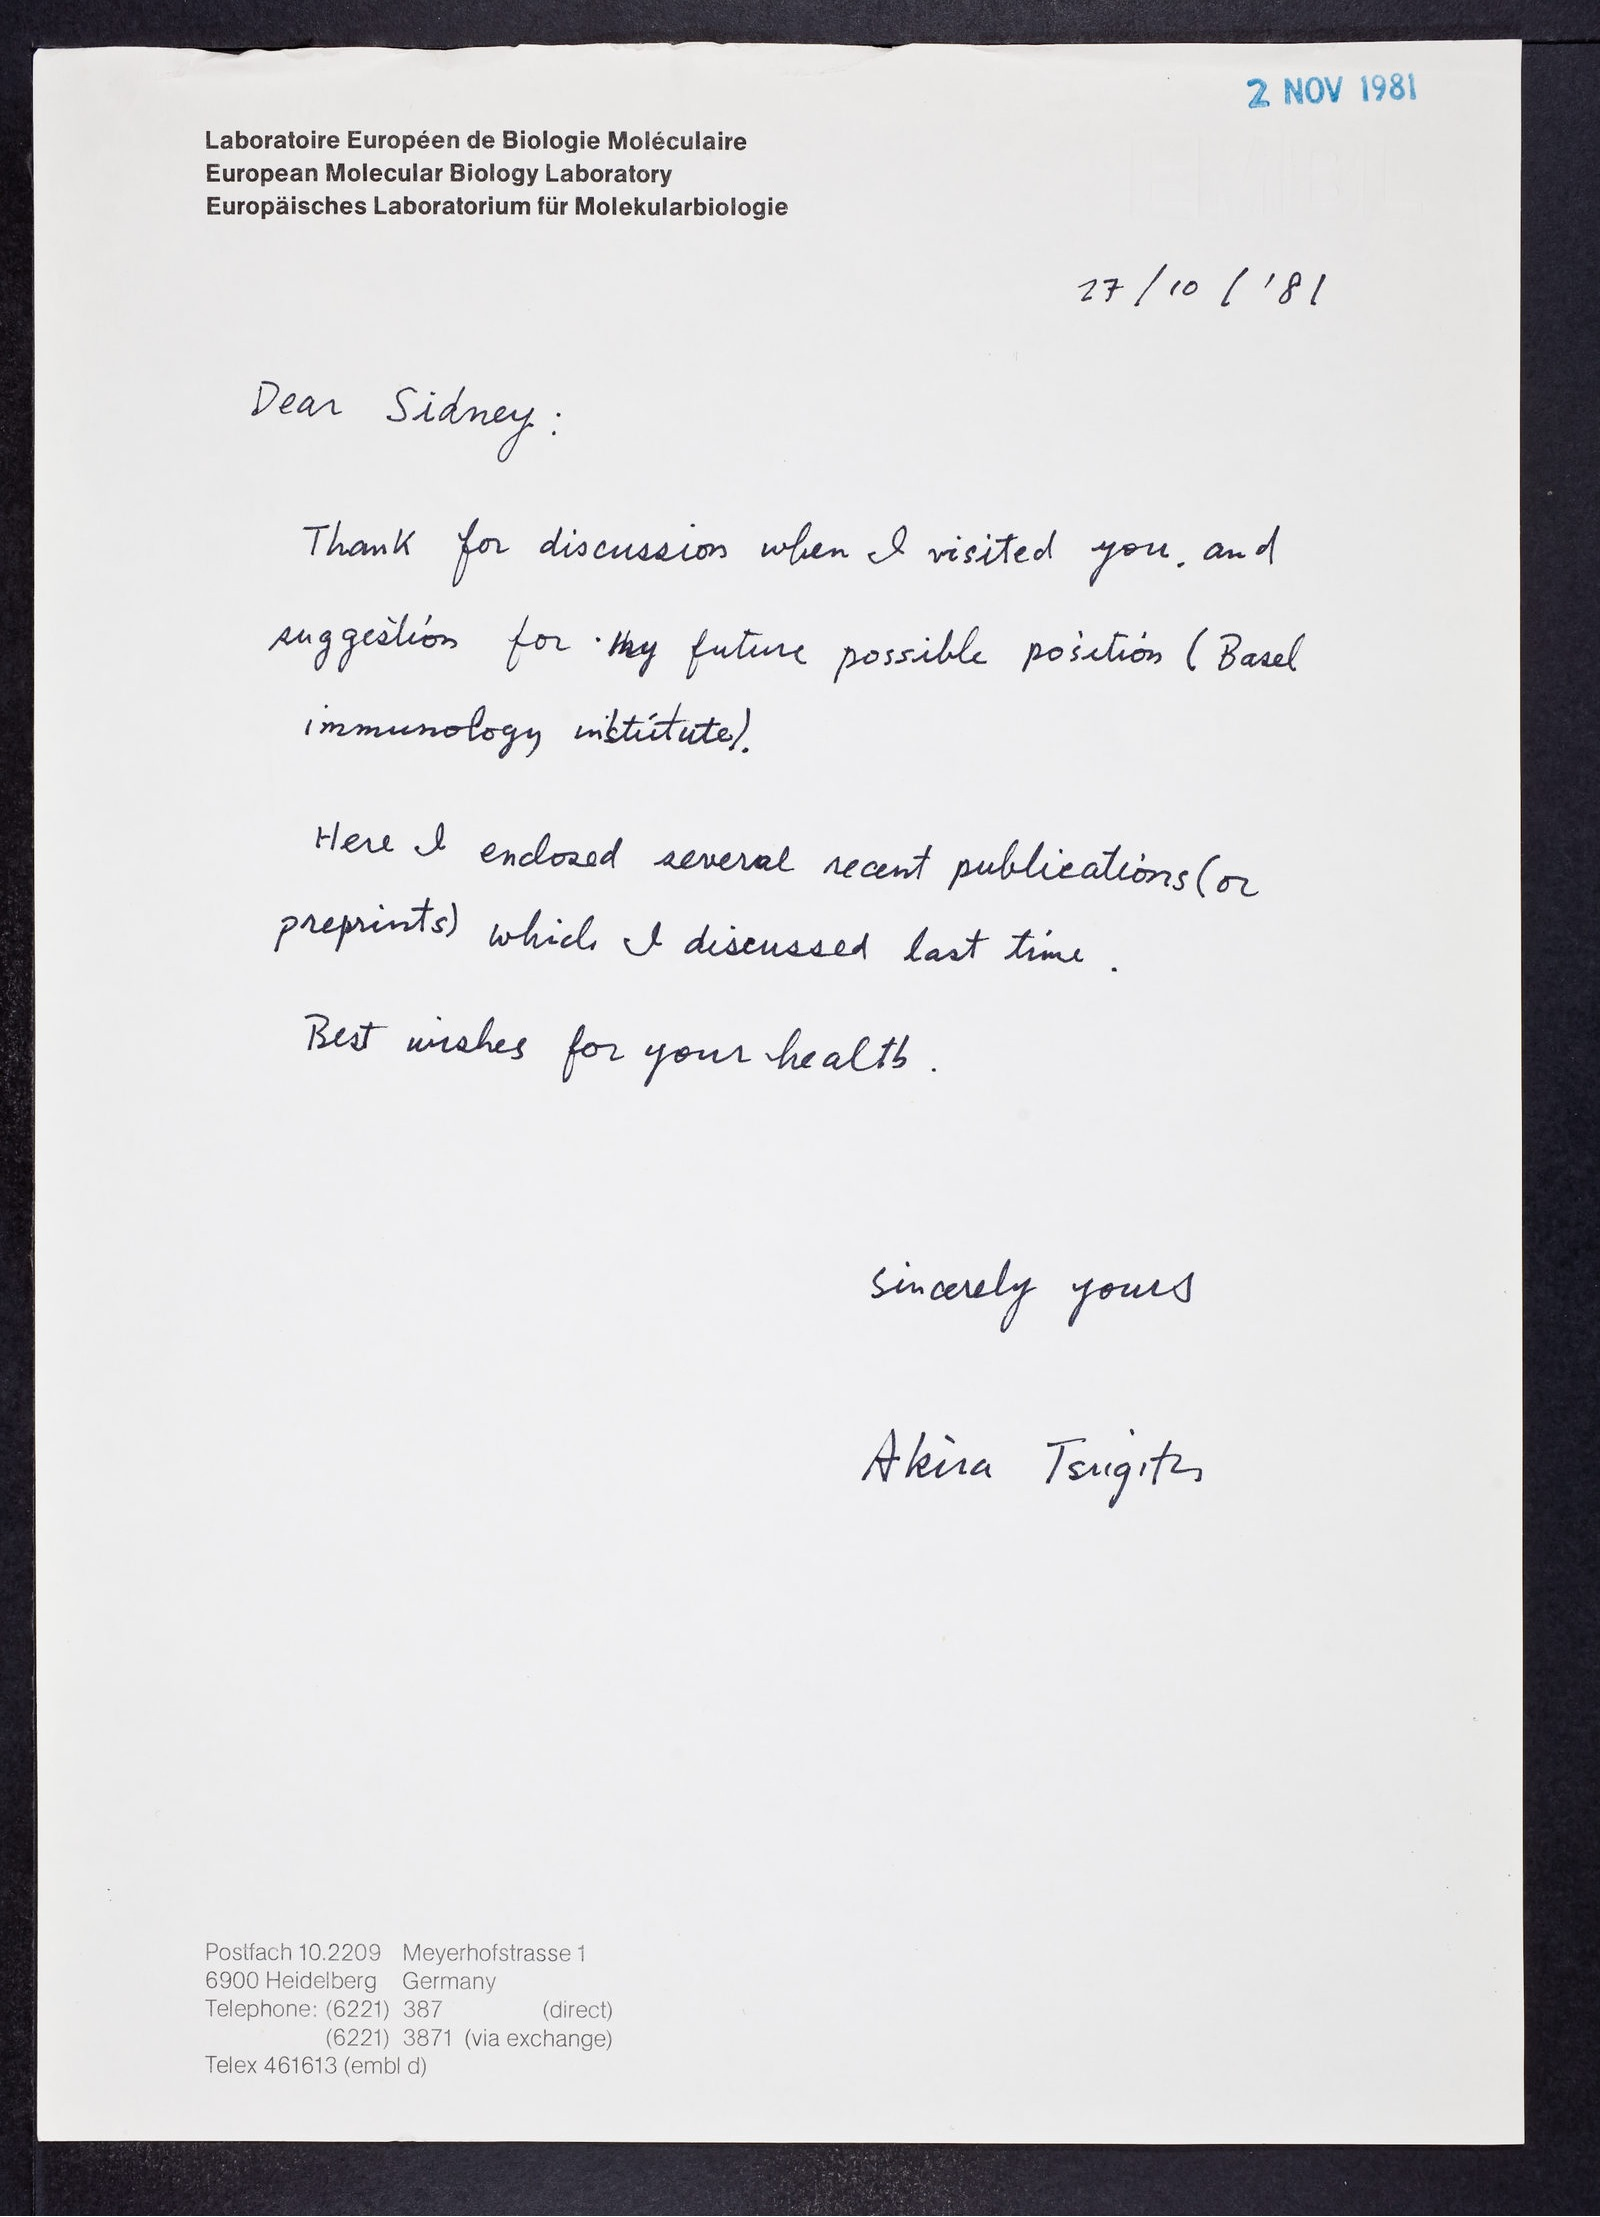 2 NOV 1981
Laboratoire Européen de Biologie Moléculaire
European Molecular Biology Laboratory
Europäisches Laboratorium für Molekularbiologie
27/10/'81
Dear Sidney:
Thank for discussion when I visited you, and
suggestion for my future possible position (Basel
immunology institute).
Here I enclosed several recent publications (or
preprints) which I discussed last time.
Best wishes for your health.
sincerely yours
Akira
Postfach 10.2209 Meyerhofstrasse 1
6900 Heidelberg Germany
Telephone: (6221) 387 (direct)
(6221) 3871 (via exchange)
Telex 461613 (embl d)